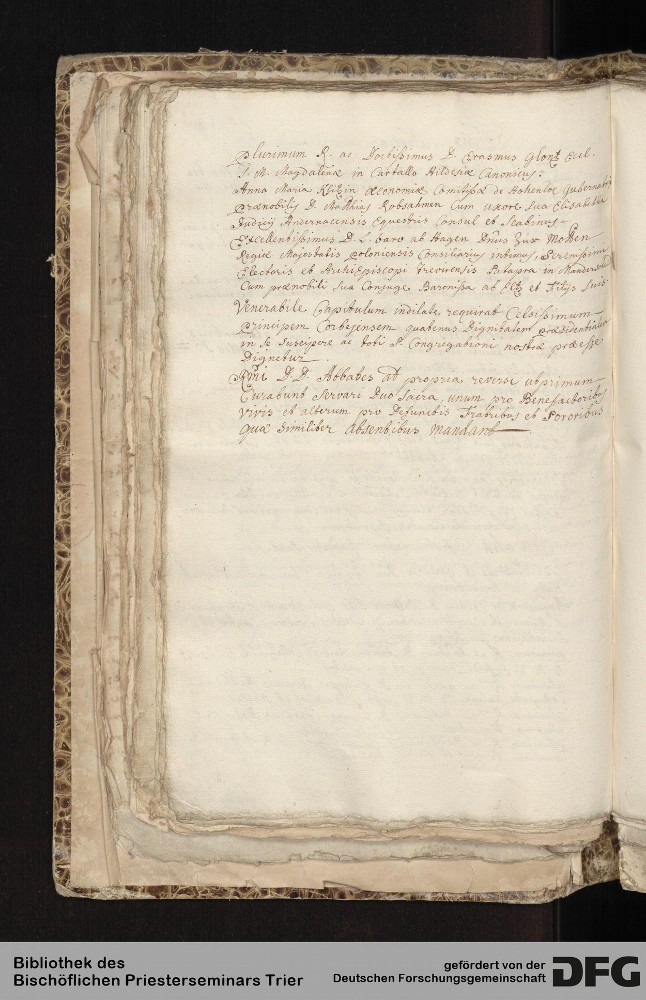 Plurimum R. ac Doctissimus D. Erasmus Glontz Eccl.
S. M. Magdalenæ in Cartallo Hildesiæ Canonicus:
Anna Maria Klitzin œconomiæ Comitissæ de Hohenloe Gubernatrix
Prænobilis D. Matthias Robsahmen Cum uxore sua Elisabetha
Judicij Andernacensis Equestris Consul et Scabinus
Excellentissimus D. L. baro ab Hagen Dnus Zur Motten
Regiæ Majestatis poloniensis Consiliarius intimus, Serenissimi
Electoris et ArchiEpiscopi Trevirensis Satrapa in
Cum prænobili sua Conjuge Baronissa ab Eltz et Filijs suis
Venerabile Capitulum indilate requirat Celsissimum
Principem Corbejensem quatenus Dignitatem præsidentialem
in se suscipere ac toti S. Congregationi nostræ præesse
Dignetur.
Rmi D.D. Abbates ad propria reversi utprimum
Curabunt servari Duo sacra, unum pro Benefactoribus
vivis et alterum pro Defunctis Fratribus et Sororibus
quæ similiter absentibus mandant
Bibliothek des
Bischöflichen Priesterseminars Trier
gefördert von der
Deutschen Forschungsgemeinschaft
DFG